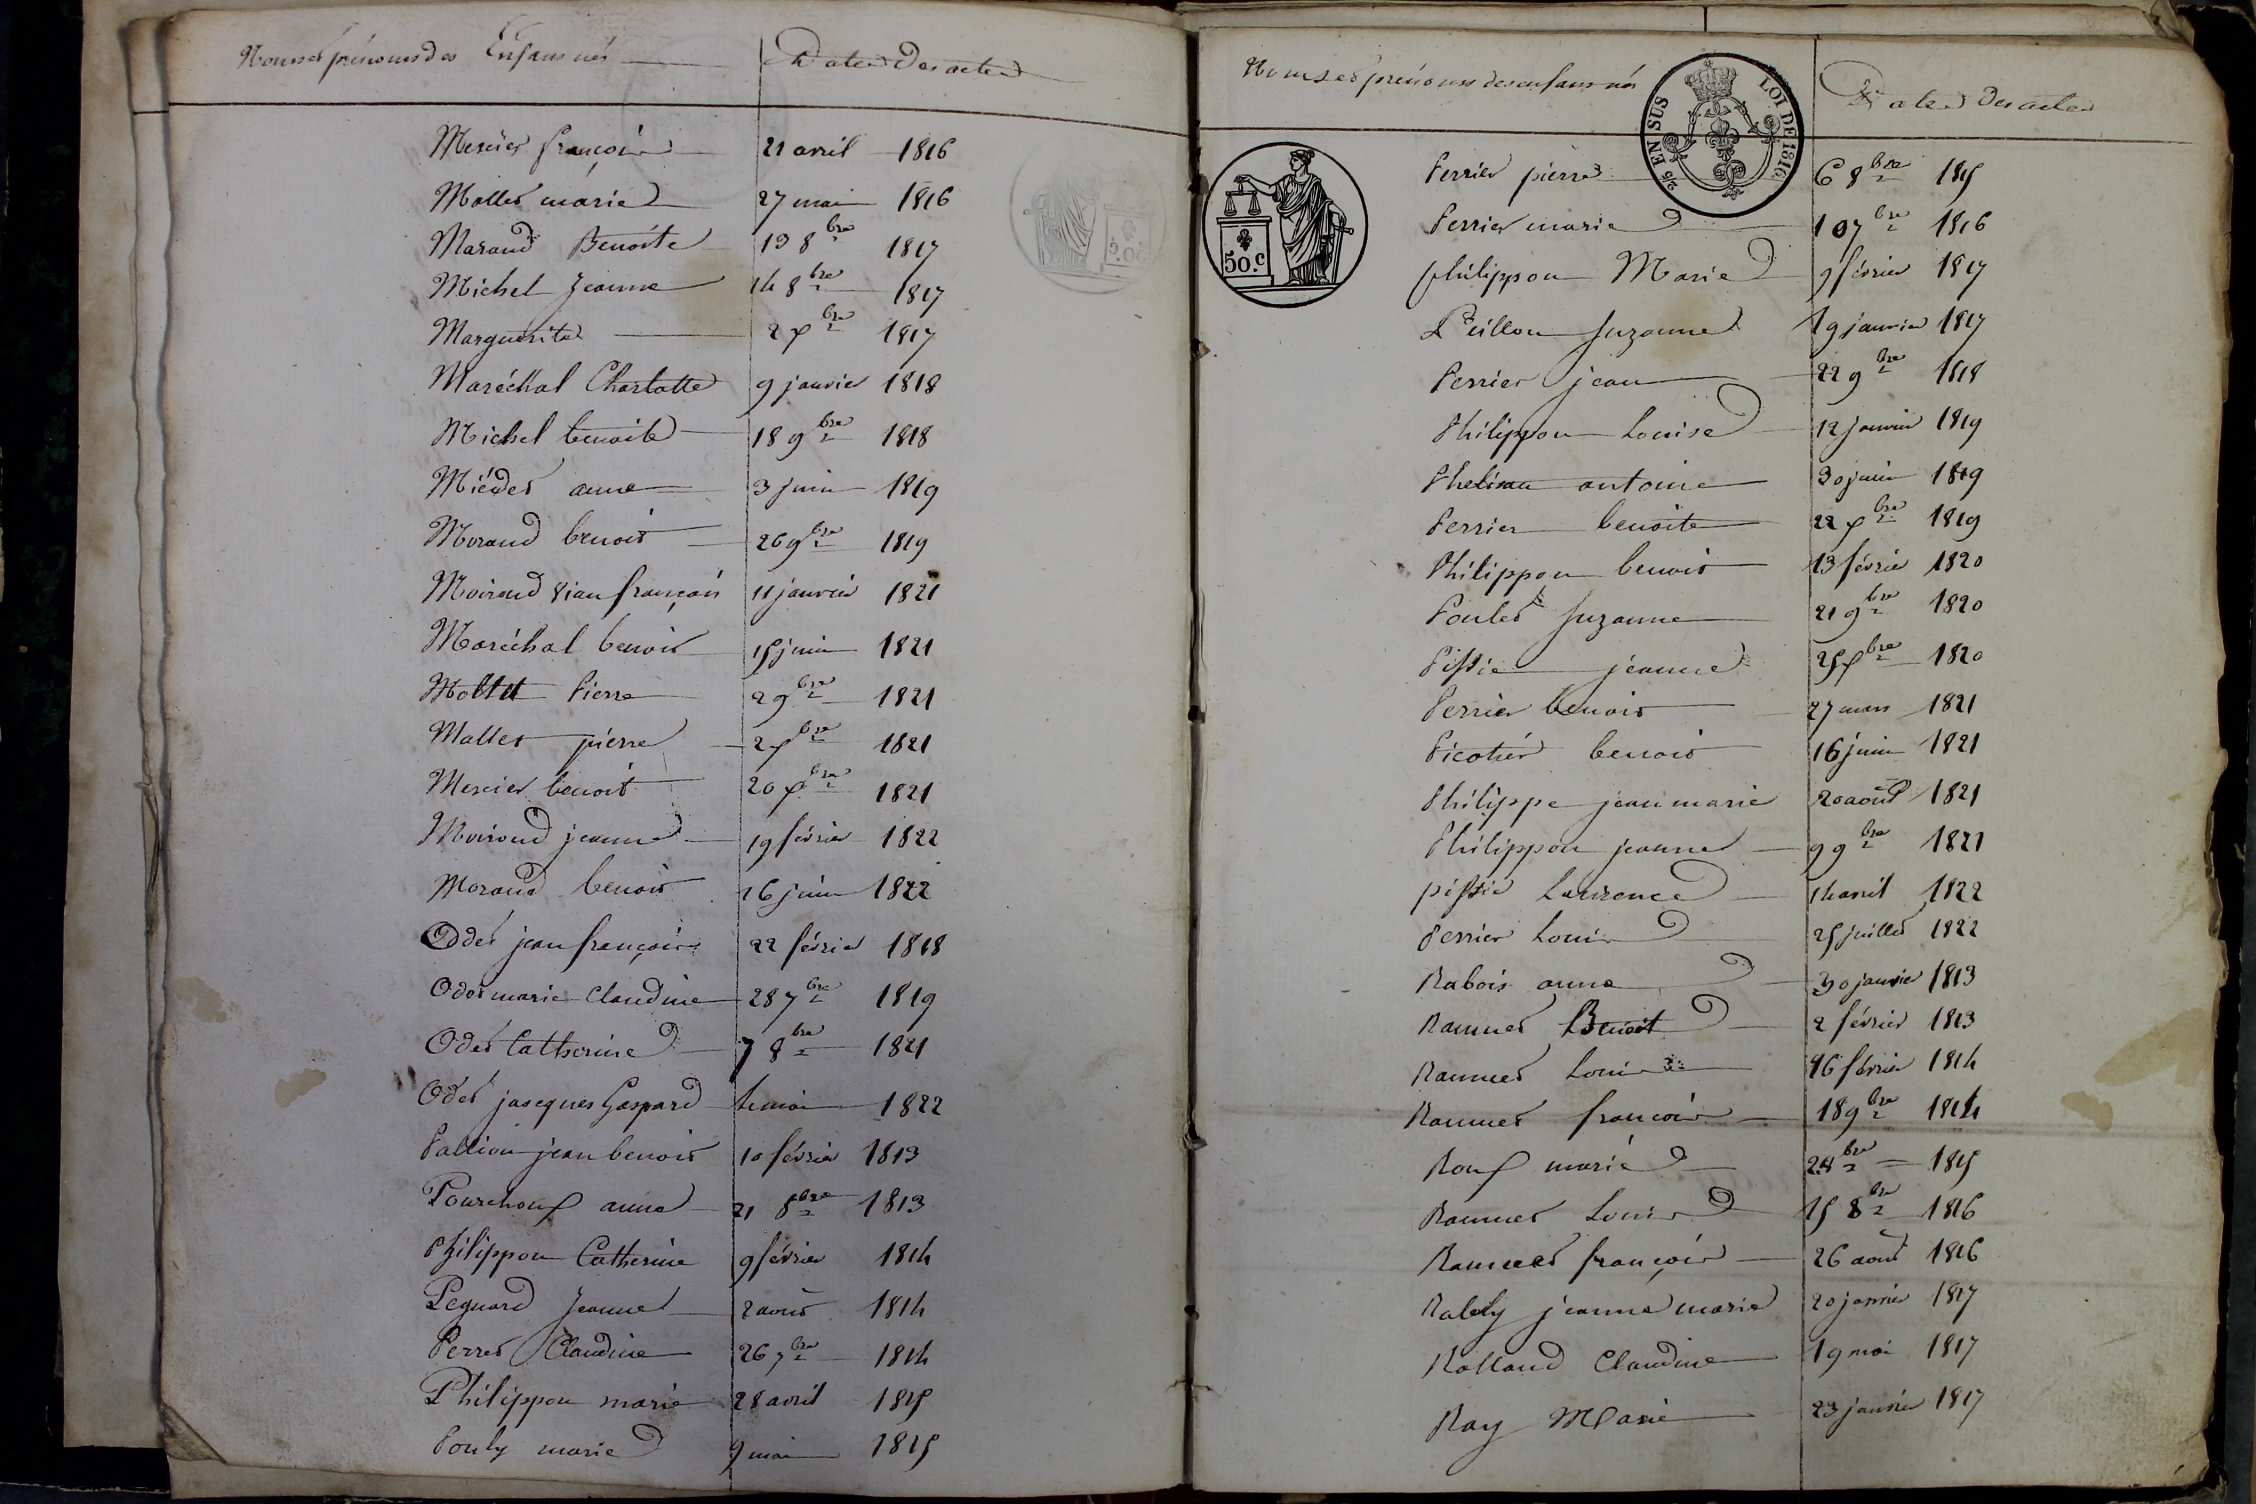 Noms et prénoms des Enfans nés Date des actes
Mercier françois 21 avril 1816
Mollet marie 27 mai 1816
Maraud Benoite 19 8bre 1817
Michel Jeanne 14 8bre 1817
Marguerite 2 xbre 1817
Maréchal Charlotte 9 janvier 1818
Michel benoite 18 9bre 1818
anne 3 juin 1819
Morand benoit 26 9bre 1819
Moiroud françois 11 janvier 1821
Maréchal benoit 15 juin 1821
Mollet Pierre 2 9bre 1821
Mallet pierre 2 xbre 1821
Mercier benoit 20 xbre 1821
Moiroud jeanne 19 février 1822
Morand benoit 16 juin 1822
Odet jean françois 22 février 1818
Odet marie Claudine 28 7bre 1819
Odet Catherine 7 8bre 1821
Odet jascques Gaspard 4 mai 1822
Pallion jean benoit 10 février 1813
Pourchoux anne 21 8bre 1813
Philippon Catherine 9 février 1814
Peguard Jeanne 2 aout 1814
Perret Claudine 26 7bre 1814
Philippon marie 28 avril 1815
Pouly marie 9 mai 1815
Noms et prénoms des enfans nés Date des actes
2/5 EN SUS LOI DE 1816.
50.c
Perrier pierre 6 8bre 1815
Perrier marie 10 7bre 1816
philippon Marie 9 février 1817
Suzanne 19 janvier 1817
Perrier jean 22 9bre 1818
Philippon Louise 12 janvier 1819
antoine 30 juin 1819
Perrier benoite 22 xbre 1819
Philippon benoit 13 février 1820
Poulet Suzanne 21 9bre 1820
Pissie jeanne 25 xbre 1820
Perrier benoit 27 mars 1821
Picotier benoit 16 juin 1821
Philippe jean marie 20 août 1821
Philippon jeanne 9 9bre 1821
pissie Laurence 14 avril 1822
Perrier Louis 25 juillet 1822
Rabois anne 30 janvier 1813
Ramuet Benoit 2 février 1813
Ramuet Louis 16 février 1814
Ramuet françois 18 9bre 1814
Roux marie 1815
Ramuet Louis 15 8bre 1816
Ramuet françois 26 aout 1816
jeanne marie 20 janvier 1817
Rolland Claudine 19 mai 1817
Ray Marie 23 janvier 1817